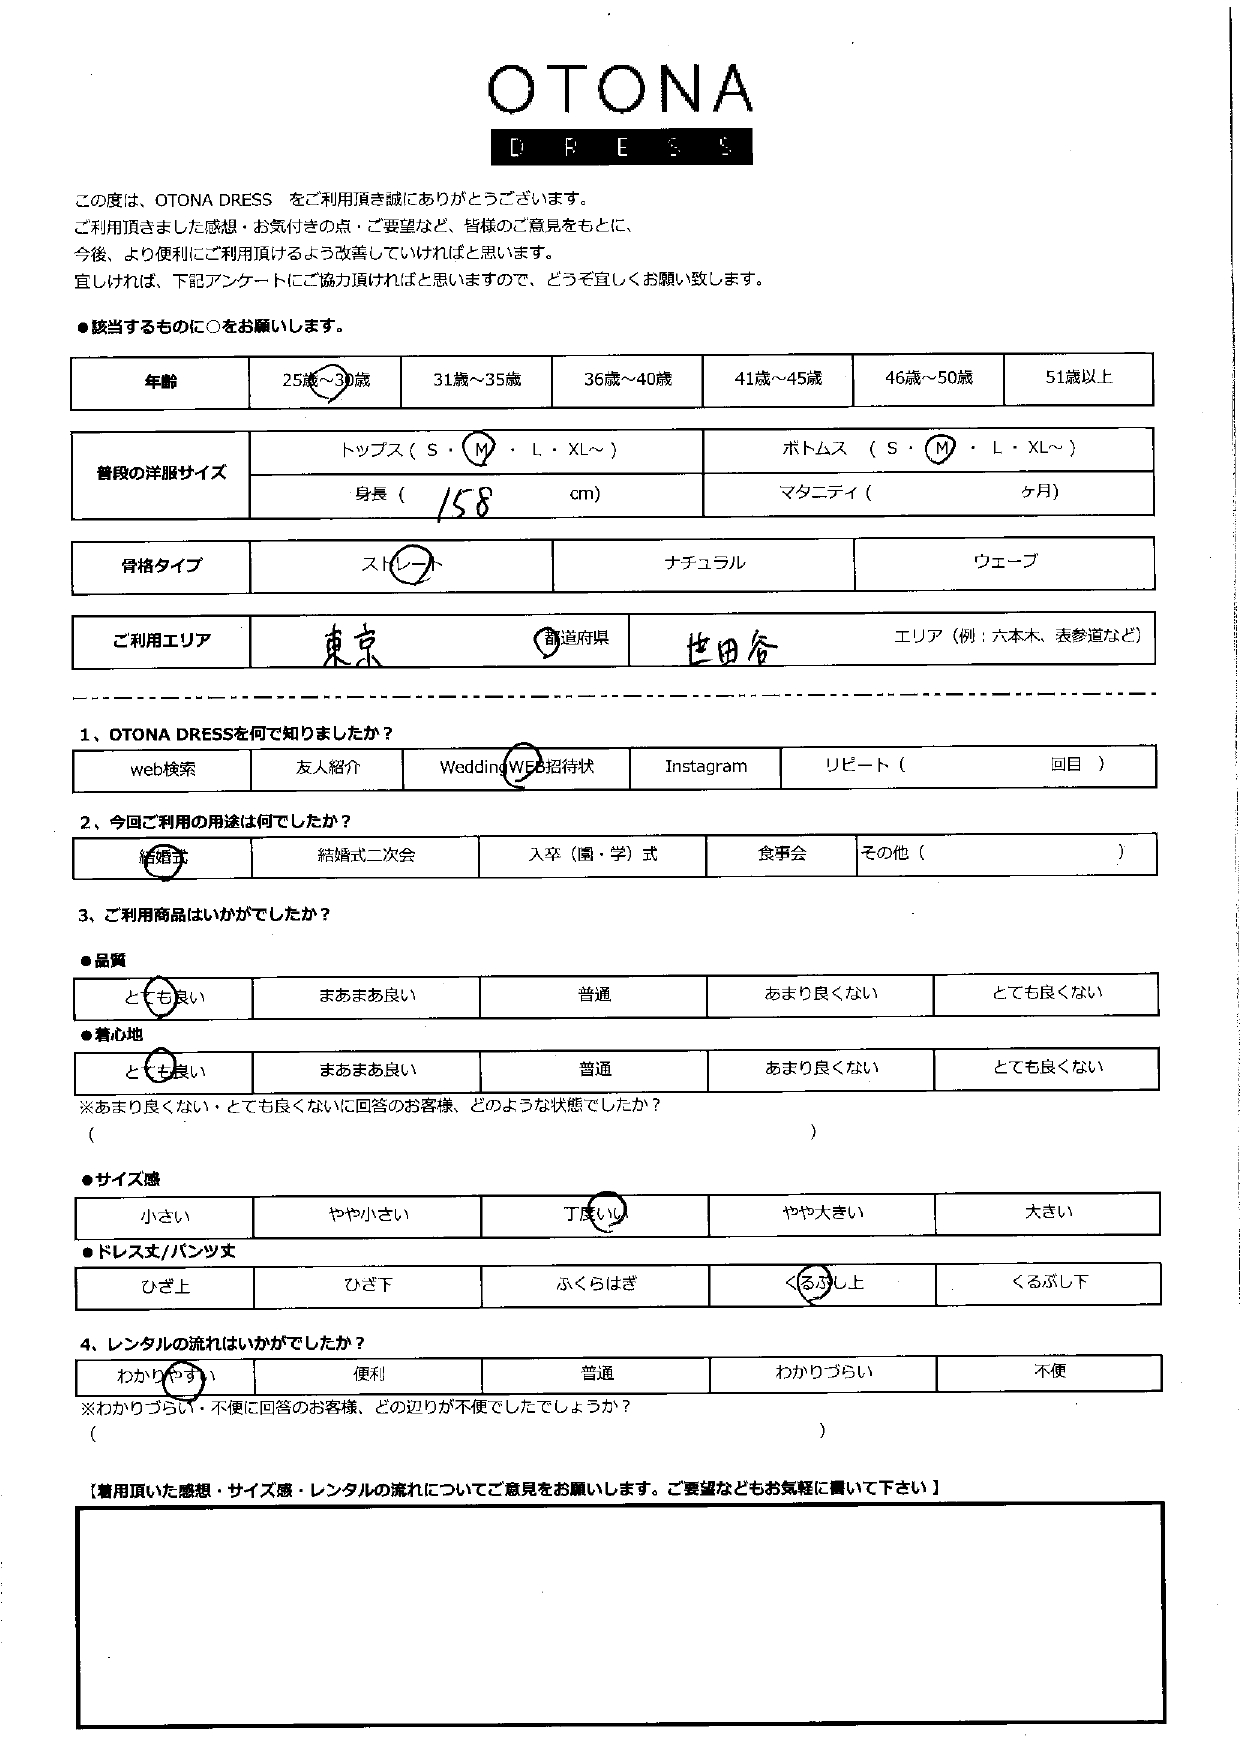 OTONA
DRESS
この度は、OTONA DRESS　をご利用頂き誠にありがとうございます。
ご利用頂きました感想・お気付きの点・ご要望など、皆様のご意見をもとに、
今後、より便利にご利用頂けるよう改善していければと思います。
宜しければ、下記アンケートにご協力頂ければと思いますので、どうぞ宜しくお願い致します。
●該当するものに○をお願いします。
年齢 25歳～30歳 31歳～35歳 36歳～40歳 41歳～45歳 46歳～50歳 51歳以上
普段の洋服サイズ
トップス ( S ・ M ・ L ・ XL～ ) ボトムス ( S ・ M ・ L ・ XL～ )
身長 ( 158 cm) マタニティ ( ケ月)
骨格タイプ ストレート ナチュラル ウェーブ
ご利用エリア 東京 都道府県 世田谷 エリア（例：六本木、表参道など）
1、OTONA DRESSを何で知りましたか？
web検索 友人紹介 WeddingWEB招待状 Instagram リピート（ 回目 ）
2、今回ご利用の用途は何でしたか？
結婚式 結婚式二次会 入卒（園・学）式 食事会 その他（ ）
3、ご利用商品はいかがでしたか？
●品質
とても良い まあまあ良い 普通 あまり良くない とても良くない
●着心地
とても良い まあまあ良い 普通 あまり良くない とても良くない
※あまり良くない・とても良くないに回答のお客様、どのような状態でしたか？
( )
●サイズ感
小さい やや小さい 丁度いい やや大きい 大きい
●ドレス丈/パンツ丈
ひざ上 ひざ下 ふくらはぎ くるぶし上 くるぶし下
4、レンタルの流れはいかがでしたか？
わかりやすい 便利 普通 わかりづらい 不便
※わかりづらい・不便に回答のお客様、どの辺りが不便でしたでしょうか？
( )
【着用頂いた感想・サイズ感・レンタルの流れについてご意見をお願いします。ご要望などもお気軽に書いて下さい 】